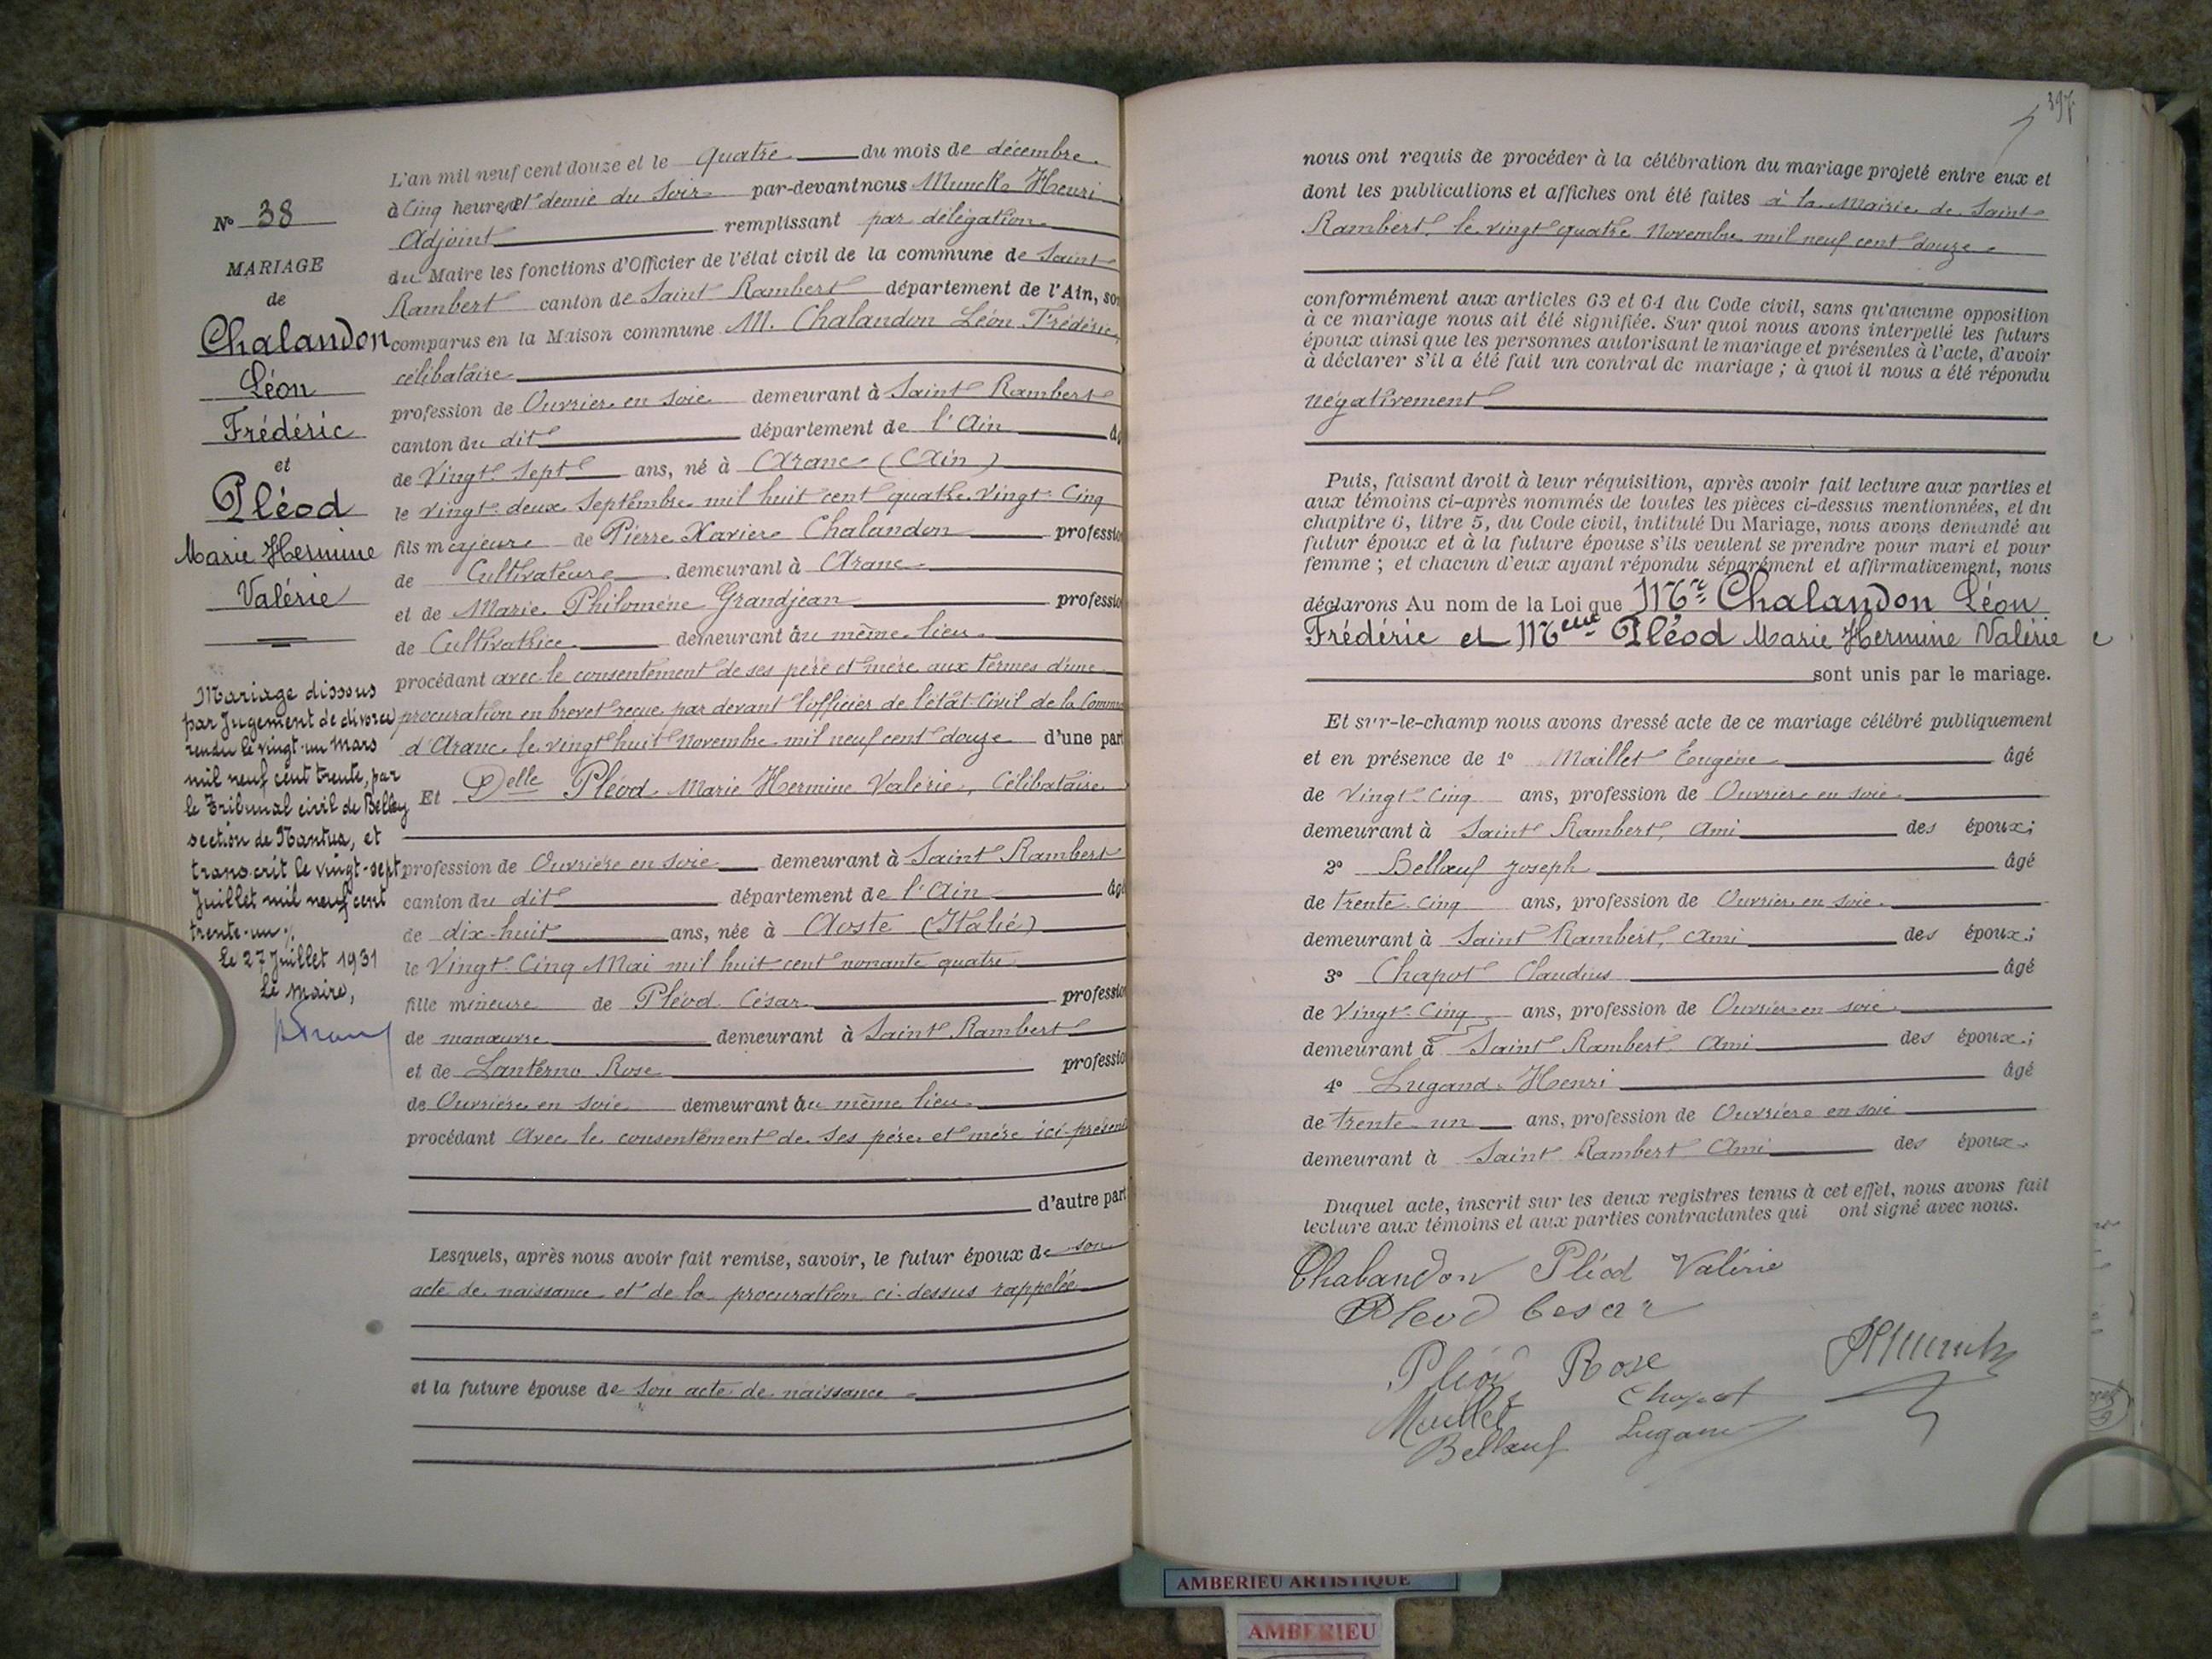 N° 38
MARIAGE
de
Chalandon
Léon
Frédéric
et
Pléod
Marie Hermine
Valérie
Mariage dissous
par Jugement de divorce
rendu le vingt-un Mars
mil neuf cent trente, par
le Tribunal civil de Belley
section de Nantua, et
transcrit le vingt-sept
Juillet mil neuf cent
trente-un
Le 27 Juillet 1931
Le Maire,
L'an mil neuf cent douze et le quatre du mois de décembre
à Cinq heures et demie du soir par-devant nous Munck Henri
Adjoint remplissant par délégation
du Maire les fonctions d'Officier de l'état civil de la commune de Saint
Rambert canton de Saint Rambert département de l'Ain, son
comparus en la Maison commune M. Chalandon Léon Frédéric
célibataire
profession de Ouvrier en soie demeurant à Saint Rambert
canton du dit département de l'Ain âg
de Vingt sept ans, né à Aranc (Ain)
le vingt-deux Septembre mil huit cent quatre-vingt-Cinq
fils majeur de Pierre Xavier Chalandon professio
de Cultivateur demeurant à Aranc
et de Marie Philomène Grandjean professio
de Cultivatrice demeurant au même lieu
procédant avec le consentement de ses père et mère aux termes d'une
procuration en brevet reçue par devant l'officier de l'état-Civil de la Commune
d'Aranc le vingt huit Novembre mil neuf cent douze d'une part
Et Delle Pléod Marie Hermine Valérie, Célibataire
profession de Ouvrière en soie demeurant à Saint Rambert
canton du dit département de l'Ain âgé
de dix-huit ans, née à Aoste (Italie)
le Vingt-Cinq Mai mil huit cent nonante quatre
fille mineure de Pléod César professio
de manœuvre demeurant à Saint Rambert
et de Lanterno Rose professio
de Ouvrière en soie demeurant au même lieu
procédant Avec le consentement de ses père et mère ici-présents
d'autre part
Lesquels, après nous avoir fait remise, savoir, le futur époux de son
acte de naissance et de la procuration ci-dessus rappelée
et la future épouse de son acte de naissance
397
nous ont requis de procéder à la célébration du mariage projeté entre eux et
dont les publications et affiches ont été faites à la Mairie de Saint
Rambert le vingt quatre Novembre mil neuf cent douze
conformément aux articles 63 et 64 du Code civil, sans qu'aucune opposition
à ce mariage nous ait été signifiée. Sur quoi nous avons interpellé les futurs
époux ainsi que les personnes autorisant le mariage et présentes à l'acte, d'avoir
à déclarer s'il a été fait un contrat de mariage ; à quoi il nous a été répondu
négativement
Puis, faisant droit à leur réquisition, après avoir fait lecture aux parties et
aux témoins ci-après nommés de toutes les pièces ci-dessus mentionnées, et du
chapitre 6, titre 5, du Code civil, intitulé Du Mariage, nous avons demandé au
futur époux et à la future épouse s'ils veulent se prendre pour mari et pour
femme ; et chacun d'eux ayant répondu séparément et affirmativement, nous
déclarons Au nom de la Loi que Mr Chalandon Léon
Frédéric et Melle Pléod Marie Hermine Valérie
sont unis par le mariage.
Et sur-le-champ nous avons dressé acte de ce mariage célébré publiquement
et en présence de 1° Maillet Eugène âgé
de Vingt-Cinq ans, profession de Ouvrier en soie
demeurant à Saint Rambert, Ami des époux;
2° Bellœuf Joseph âgé
de trente-cinq ans, profession de Ouvrier en soie
demeurant à Saint Rambert, Ami des époux;
3° Chapot Claudius âgé
de Vingt-Cinq ans, profession de Ouvrier en soie
demeurant à Saint Rambert Ami des époux;
4° Lugand Henri âgé
de trente-un ans, profession de Ouvrier en soie
demeurant à Saint Rambert Ami des époux.
Duquel acte, inscrit sur les deux registres tenus à cet effet, nous avons fait
lecture aux témoins et aux parties contractantes qui ont signé avec nous.
Chalandon Pléod Valérie
Pleod Cesar
Pléod Rose
HMunck
Maillet Chapot
Bellœuf Lugand
AMBERIEU ARTISTIQUE
AMBERIEU